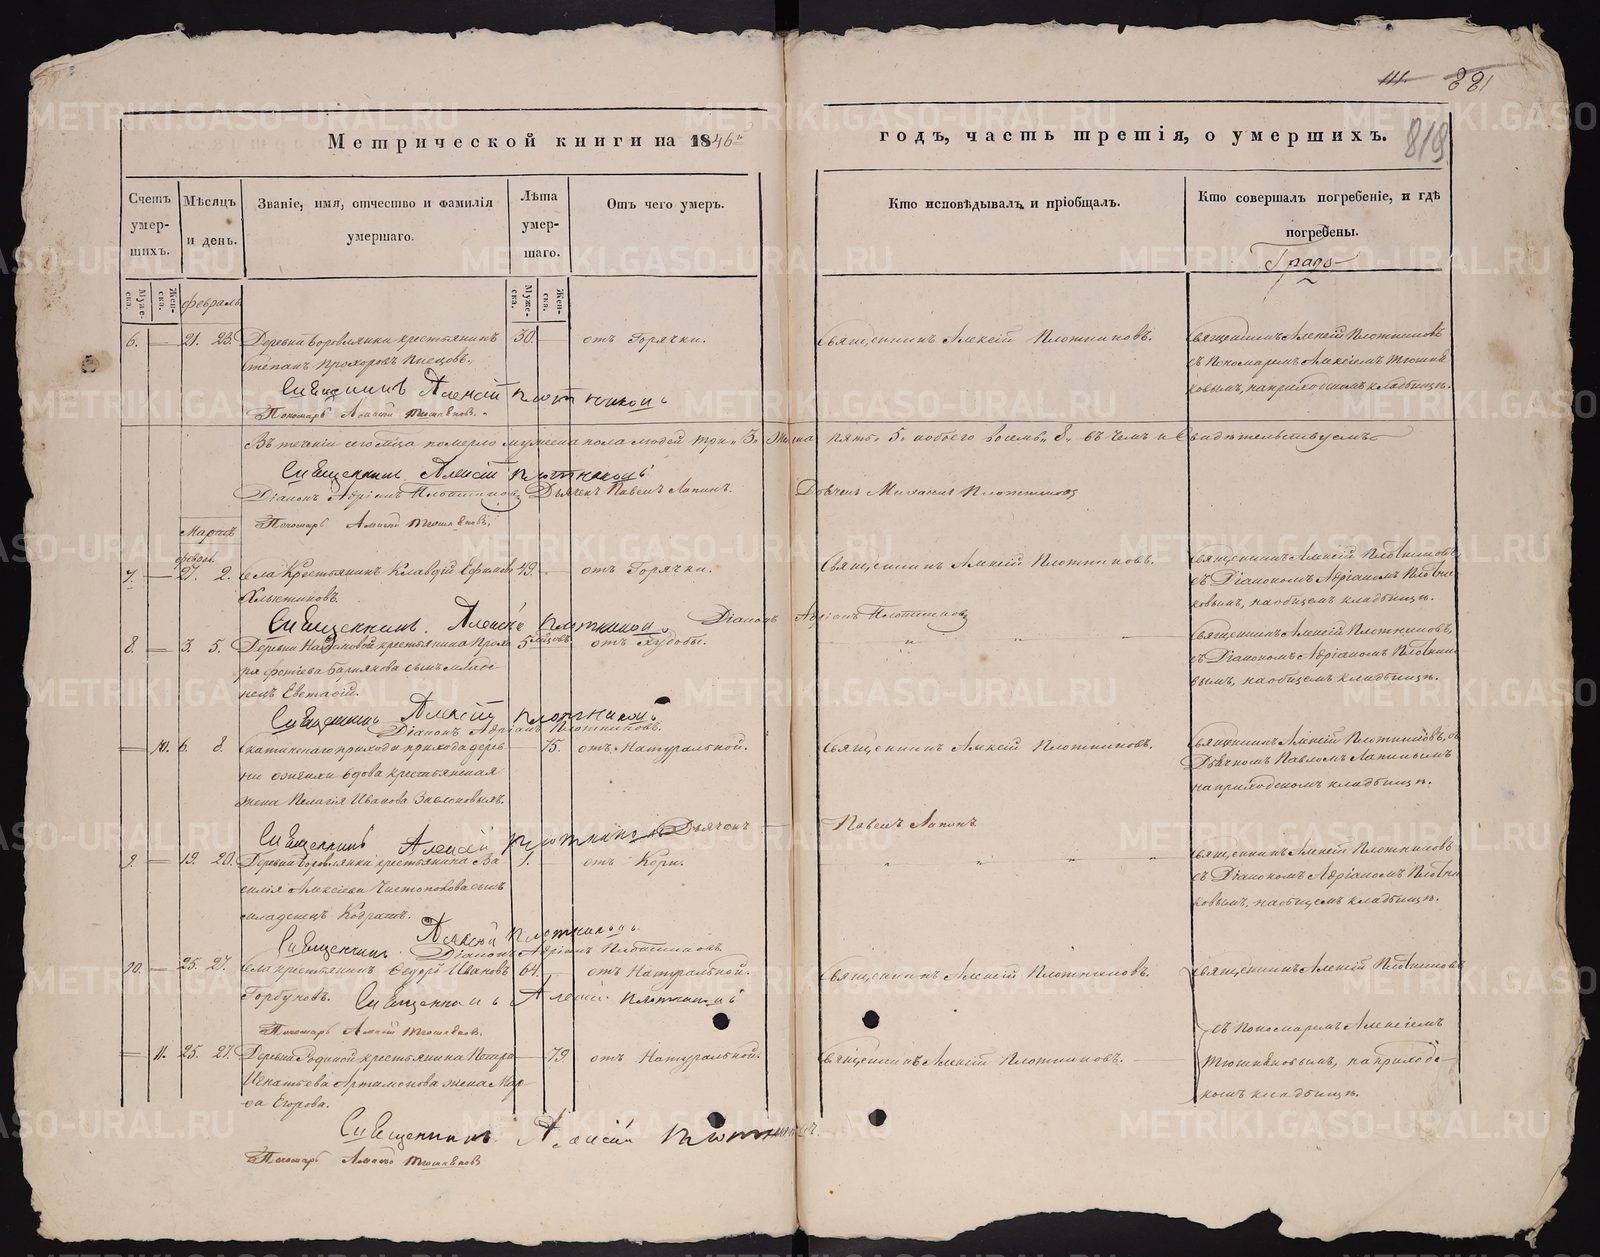 111. 881
Метрической книги на 1846й годъ, часть третія, о умершихъ. 819
Счетъ умер-шихъ.
Мѣсяцъ и день.
Званіе, имя, отчество и фамилія умершаго.
Лѣта умер-шаго.
Отъ чего умеръ.
Кто исповѣдывалъ и пріобщалъ.
Кто совершалъ погребеніе, и гдѣ погребены.
Муже-ска.
Жен-ска.
Февраль
Муже-ска.
Жен-ска.
6. — 21. 23. Деревни Боровлянки крестьянинъ 30. — отъ Горячки. Священникъ Алексій Плотниковъ. Священникъ Алексій Плотниковъ
Степанъ Прохоровъ съ Пономаремъ Алексіемъ Тюшня-
ковымъ, на приходскомъ кладбищѣ.
Священникъ Алексій Плотниковъ
Пономарь Алексій Тюшняковъ.
Въ теченіи сего мѣсяца померло мужеска пола людей три 3. Женска пять 5. обоего восемь 8. въ чемъ и Свидѣтельствуемъ
Священникъ Алексій Плотниковъ
Діаконъ Адріанъ Плотниковъ Дьячекъ Павелъ Лапинъ. Дьячекъ Михаилъ Плотниковъ
Пономарь Алексій Тюшняковъ.
Мартъ
феврал.
7. — 27. 2. Села Крестьянинъ Клавдій Ефимовъ 49. — отъ Горячки. Священникъ Алексій Плотниковъ. Священникъ Алексій Плотниковъ,
съ Діакономъ Адріаномъ Плотни-
ковымъ, на общемъ кладбищѣ.
Священникъ Алексій Плотниковъ Діаконъ Адріанъ Плотниковъ
8. — 3. 5. крестьянина 5 мѣсяцовъ отъ Худобы. Священникъ Алексій Плотниковъ,
съ Діакономъ Адріаномъ Плотнико-
сынъ младе-
вымъ, на общемъ кладбищѣ.
нецъ Евстафій.
Священникъ Алексій Плотниковъ
Діаконъ Адріанъ Плотниковъ.
— 10. 6. 8. прихода дерев- — 75. отъ Натуральной. Священникъ Алексій Плотниковъ. Священникъ Алексій Плотниковъ, съ
ни вдова крестьянская Дьячкомъ Павломъ Лапинымъ
жена Пелагія Иванова на приходскомъ кладбищѣ.
Священникъ Алексій Плотниковъ Дьячекъ Павелъ Лапинъ
9. — 19. 20. Деревни Боровлянки крестьянина Ва- 1. — отъ Кори. Священникъ Алексій Плотниковъ
силія Алексѣева сынъ съ Діакономъ Адріаномъ Плотни-
младенецъ Кодратъ. ковымъ, на общемъ кладбищѣ.
Священникъ Алексій Плотниковъ.
Діаконъ Адріанъ Плотниковъ
10. — 25. 27. Села крестьянинъ Ѳедоръ Ивановъ 64. — отъ Натуральной. Священникъ Алексій Плотниковъ. Священникъ Алексій Плотниковъ
Горбуновъ. Священникъ Алексій Плотниковъ
Пономарь Алексій Тюшняковъ. съ Пономаремъ Алексіемъ
— 11. 25. 27. Деревни крестьянина — 79. отъ Натуральной. Священникъ Алексій Плотниковъ. Тюшняковымъ, на приход-
Игнатьева Артамонова жена Мар- скомъ кладбищѣ.
ѳа Егорова.
Священникъ Алексій Плотниковъ
Пономарь Алексій Тюшняковъ
METRIKI.GASO-URAL.RU